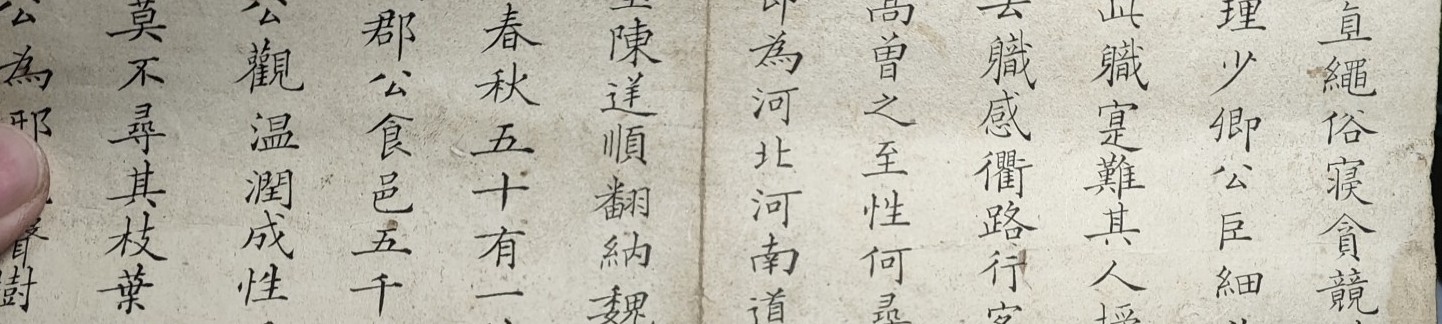 直繩俗寝貪競
理少卿公臣細
此職寔難其人
去職感衢路行客
高曾之至性何尋
即為河北河南道
陳逆順翻納魏
春秋五十有一
郡公食邑五千
公觀温潤成性
莫不尋其枝葉
公為邪聲樹